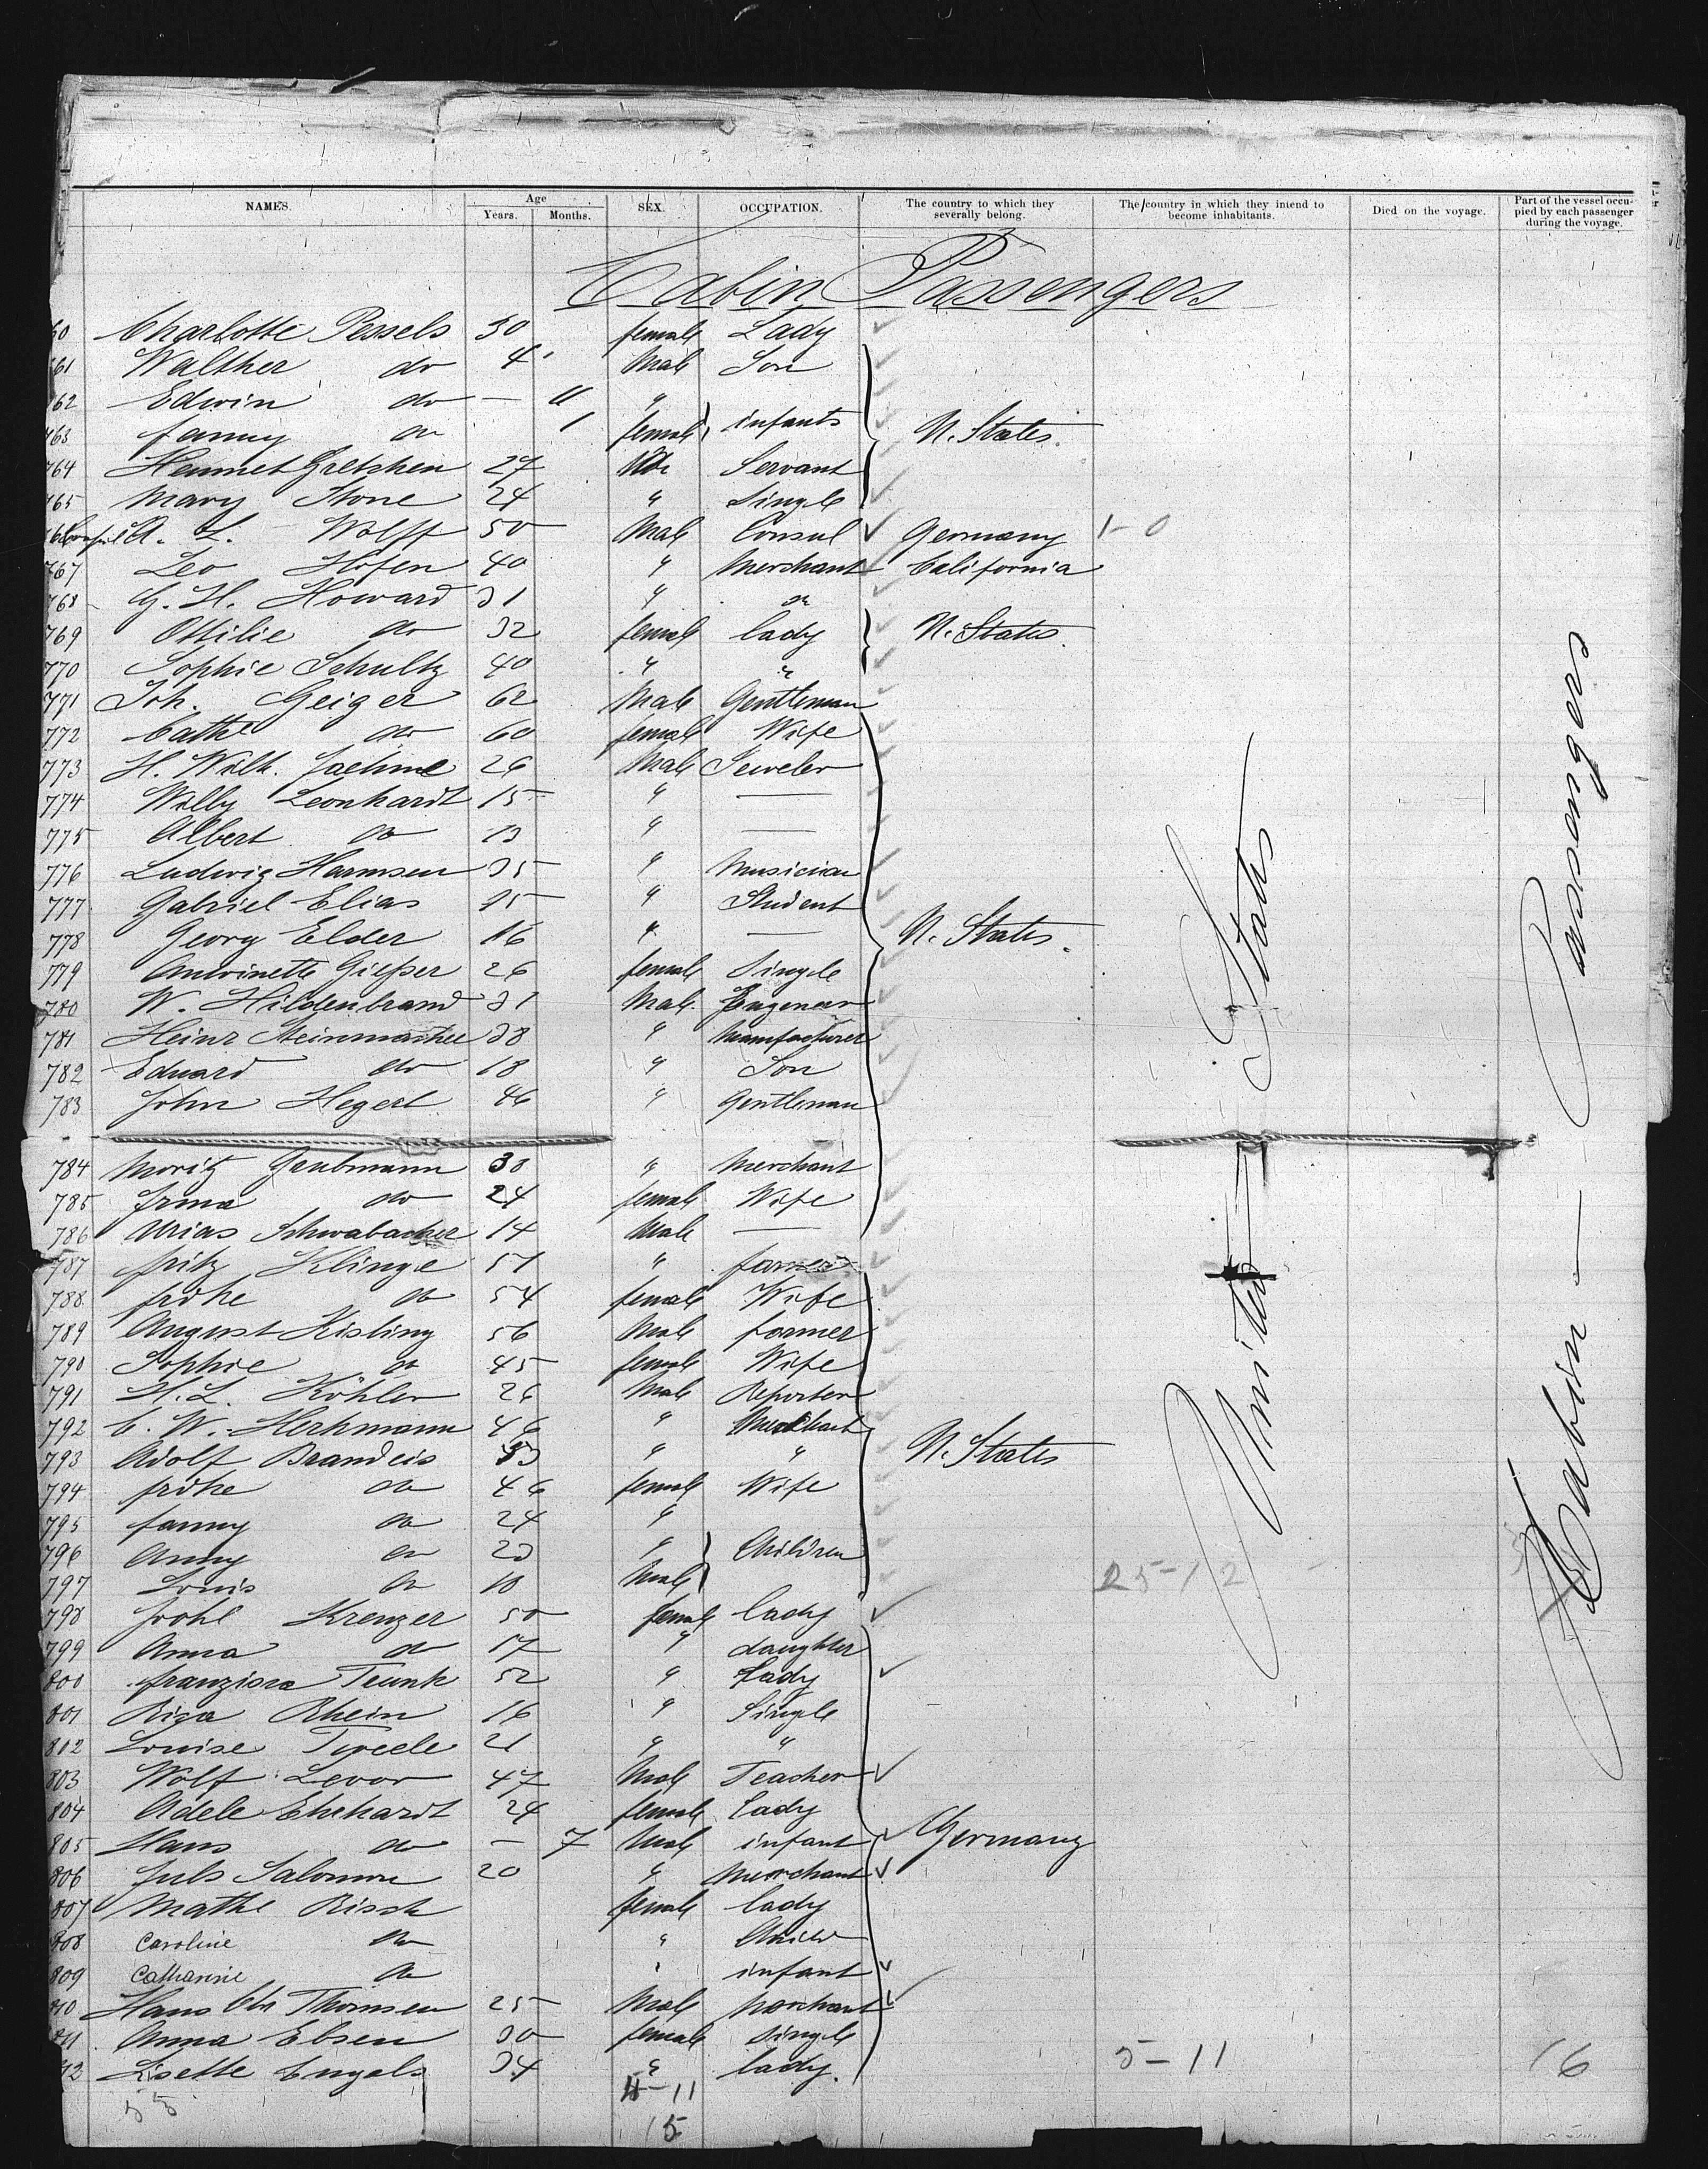 NAMES. Age Years. Months. SEX. OCCUPATION. The country to which they severally belong. The country in which they intend to become inhabitants. Died on the voyage. Part of the vessel occupied by each passenger during the voyage.
Cabin Passengers
60 Charlotte Pessels 30 female Lady
761 Walther do 4 Male Son
762 Edwin do — 11 "
763 fanny do 1 female } infants U. States.
764 Gretchen 27 do Servant
765 Mary Stone 24 " Single
766 Consul A. L. Wolff 50 Male Consul Germany 1-0
767 Leo Hofen 40 " Merchant California
768 G. H. Howard 31 " do
769 Ottilie do 32 female lady U. States.
770 Sophie Schultz 40 " "
771 Joh. Geiger 62 Male Gentleman
772 Cathe do 60 female Wife
773 H. Wilh. Jaehme 26 Male Jeweler
774 Willy Leonhardt 15 " —
775 Albert do 13 " —
776 Ludwig Harmsen 35 " Musician
777 Gabriel Elias 15 " Student
778 Georg Elder 16 " — U. States.
779 Antoinette Giesser 26 female Single
780 W. Hildenbrand 31 Male Engeneer
781 Heinr Steinmacher 38 " Manufacturer
782 Eduard do 18 " Son
783 John Hegerl 46 " Gentleman
784 Moritz Graubmann 38 " Merchant
785 Irma do 24 female Wife
786 Urias Schwabacher 14 Male —
787 fritz Klinge 51 " farmer
788 do 54 female Wife
789 August Kisling 56 Male farmer
790 Sophie do 45 female Wife
791 H. L. Köhler 26 Male Reporter
792 C. W. Herkmann 46 " Merchant
793 Adolf Brandeis 53 " " U. States
794 do 46 female Wife
795 fanny do 24 "
796 Anny do 23 " } Children
797 Louis do 10 Male 25-12
798 Krenzer 50 female lady
799 Anna do 17 " daughter
800 franzisca Trunk 52 " Lady
801 Rhein 16 " Single
802 Louise 21 " "
803 Wolf Levor 47 Male Teacher
804 Adele Ehrhardt 24 female Lady
805 Hans do — 7 Male infant Germany
806 Juls Salomon 20 " Merchant
807 Mathe Risch female lady
808 Caroline do " Child
809 Catharine do " infant
810 Hans Chr Thomsen 25 Male merchant
811 Anna Ebsen 30 female single
812 Lisette Engels 34 " lady.
5-11
16
55
4-11
15
United States
Cabin — Passengers